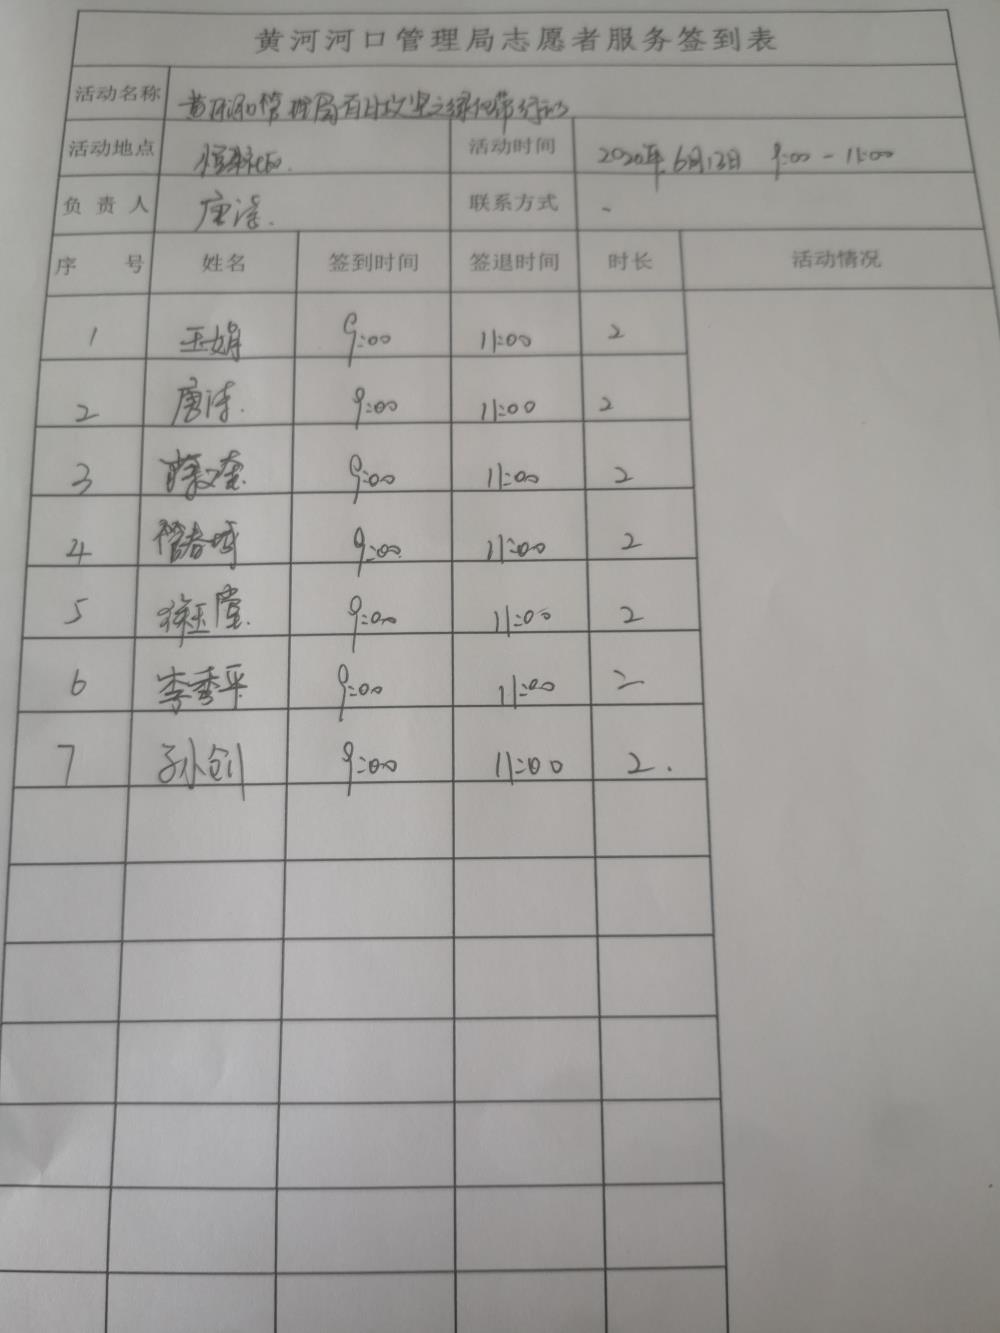 黄河河口管理局志愿者服务签到表
活动名称 黄河河口管理局百日攻坚之绿化带行动
活动地点 活动时间 2020年6月13日 9:00-11:00
负责人 唐涛. 联系方式 -
序号 姓名 签到时间 签退时间 时长 活动情况
1 王娟 9:00 11:00 2
2 唐涛. 9:00 11:00 2
3 9:00 11:00 2
4 9:00 11:00 2
5 徐玉堂. 9:00 11:00 2
6 李秀平 9:00 11:00 2
7 孙剑 9:00 11:00 2.